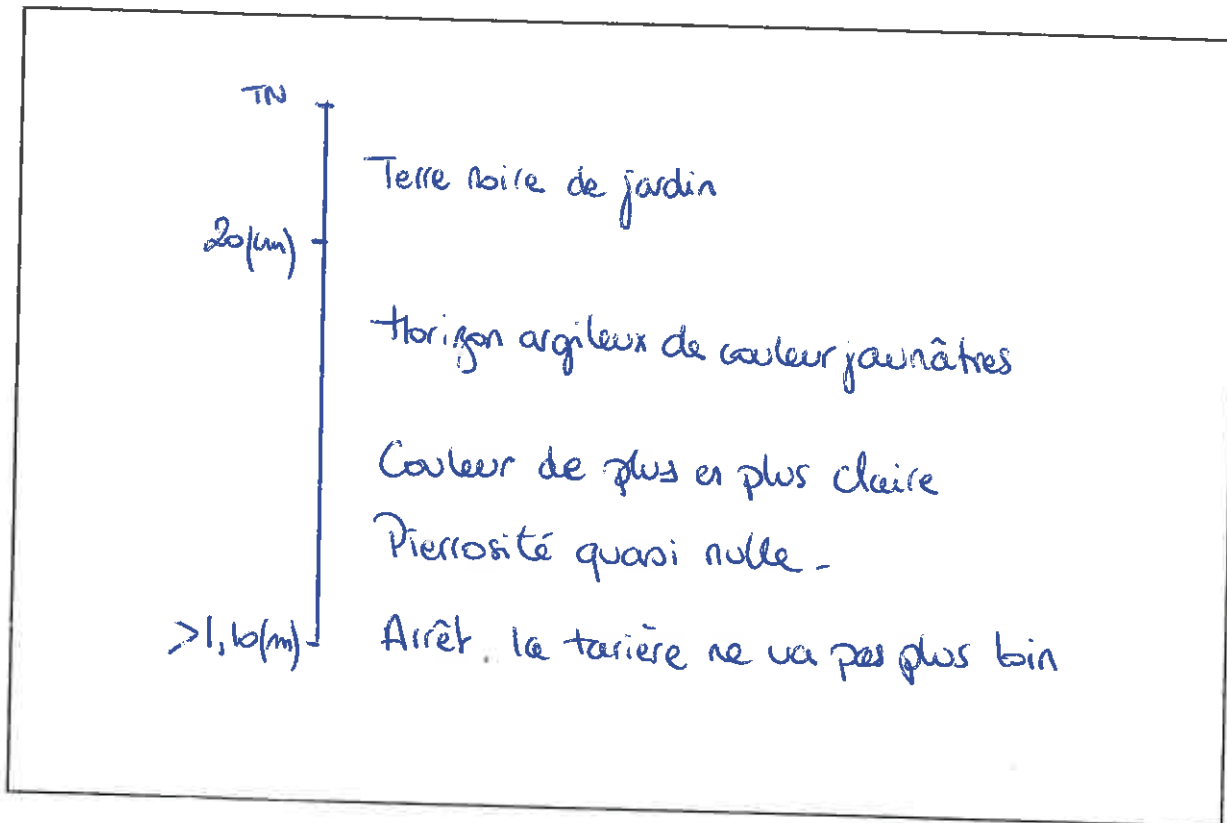 TN
Terre noire de jardin
20(cm)
Horizon argileux de couleur jaunâtres
Couleur de plus en plus claire
Pierrosité quasi nulle -
>1,10(m) Arrêt. la tarière ne va pas plus loin